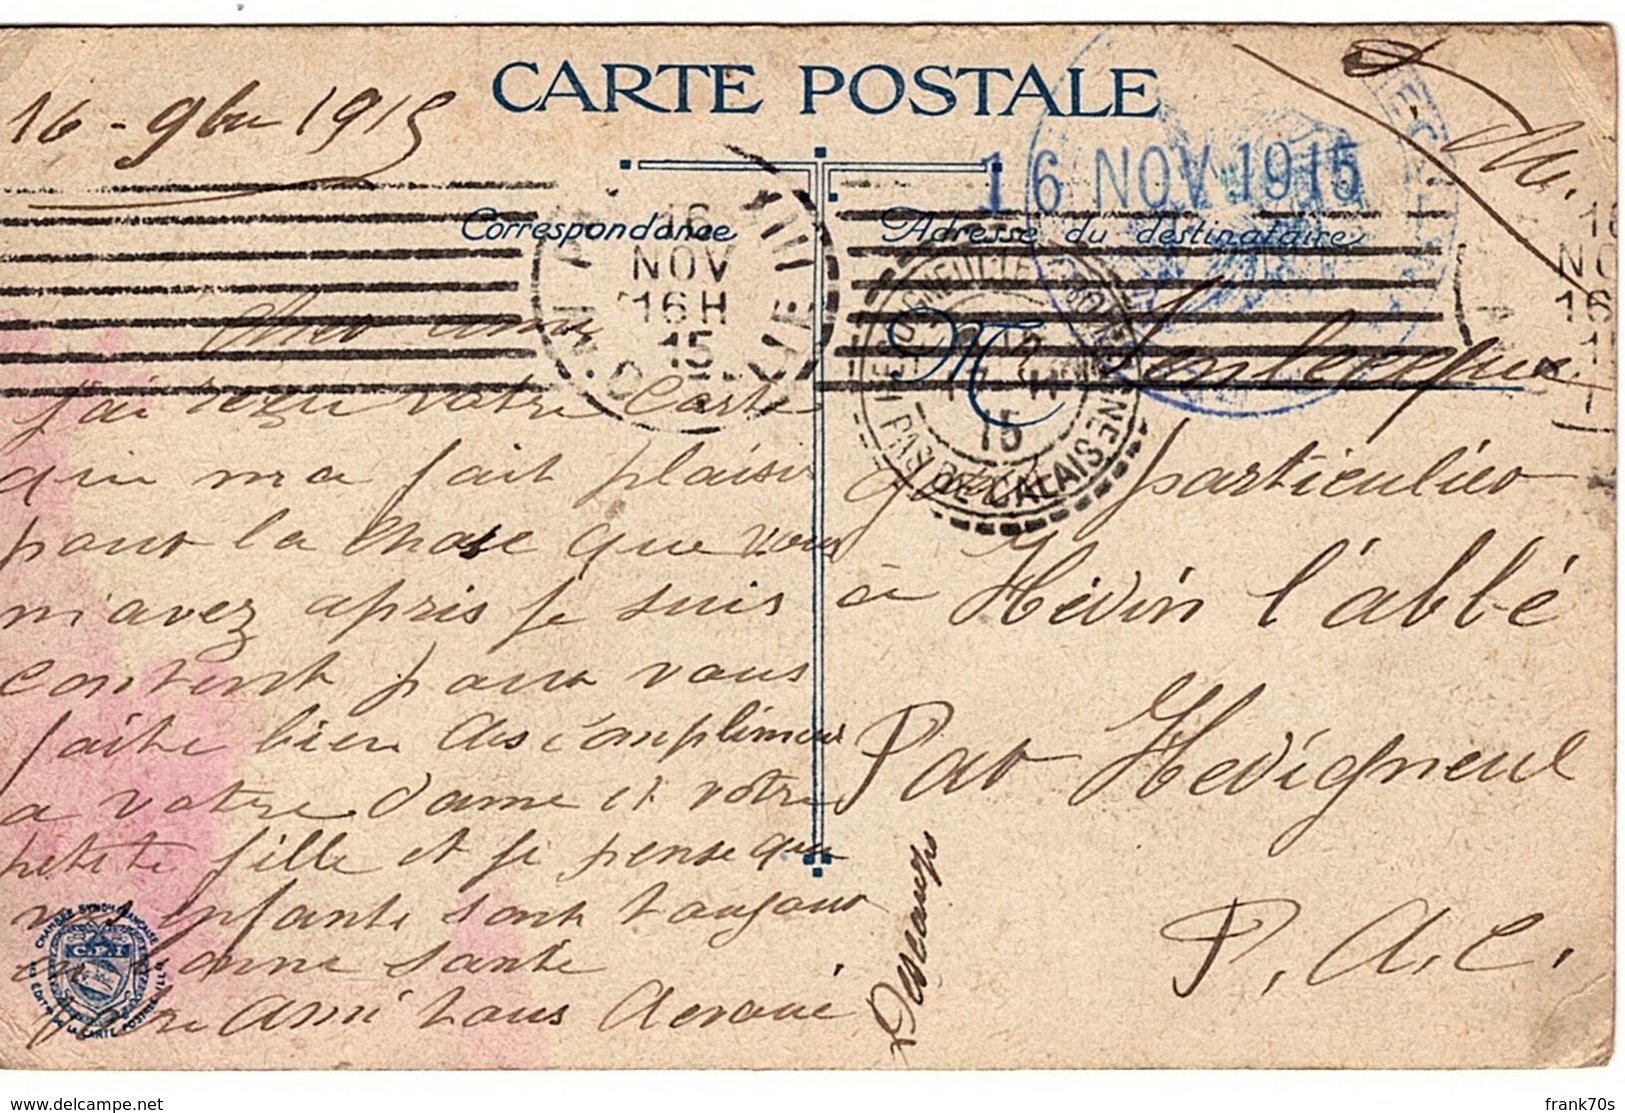 CARTE POSTALE
16 - 9bre 1915
16 NOV 1915
F.M.
Correspondance
Adresse du destinataire
16
NOV
16H
15
HESDIGNEUL
PAS DE CALAIS
15
Cher ami
M
j'ai reçu votre Carte
qui ma fait plaisir
pour la chose que vous
m'avez apris je suis
contant pour vous
faite bien des compliments
a votre dame et votre
petite fille et je pense que
vos enfants sont toujour
en bonne santé
votre ami tous devoué
Deschamps
particulier
à Hévin l'abbé
Par Hédigneul
P. d. C.
CHAMBRE SYNDle FRANÇAISE
C.P.I
DE LA CARTE POSTALE ILLée
delcampe.net
frank70s